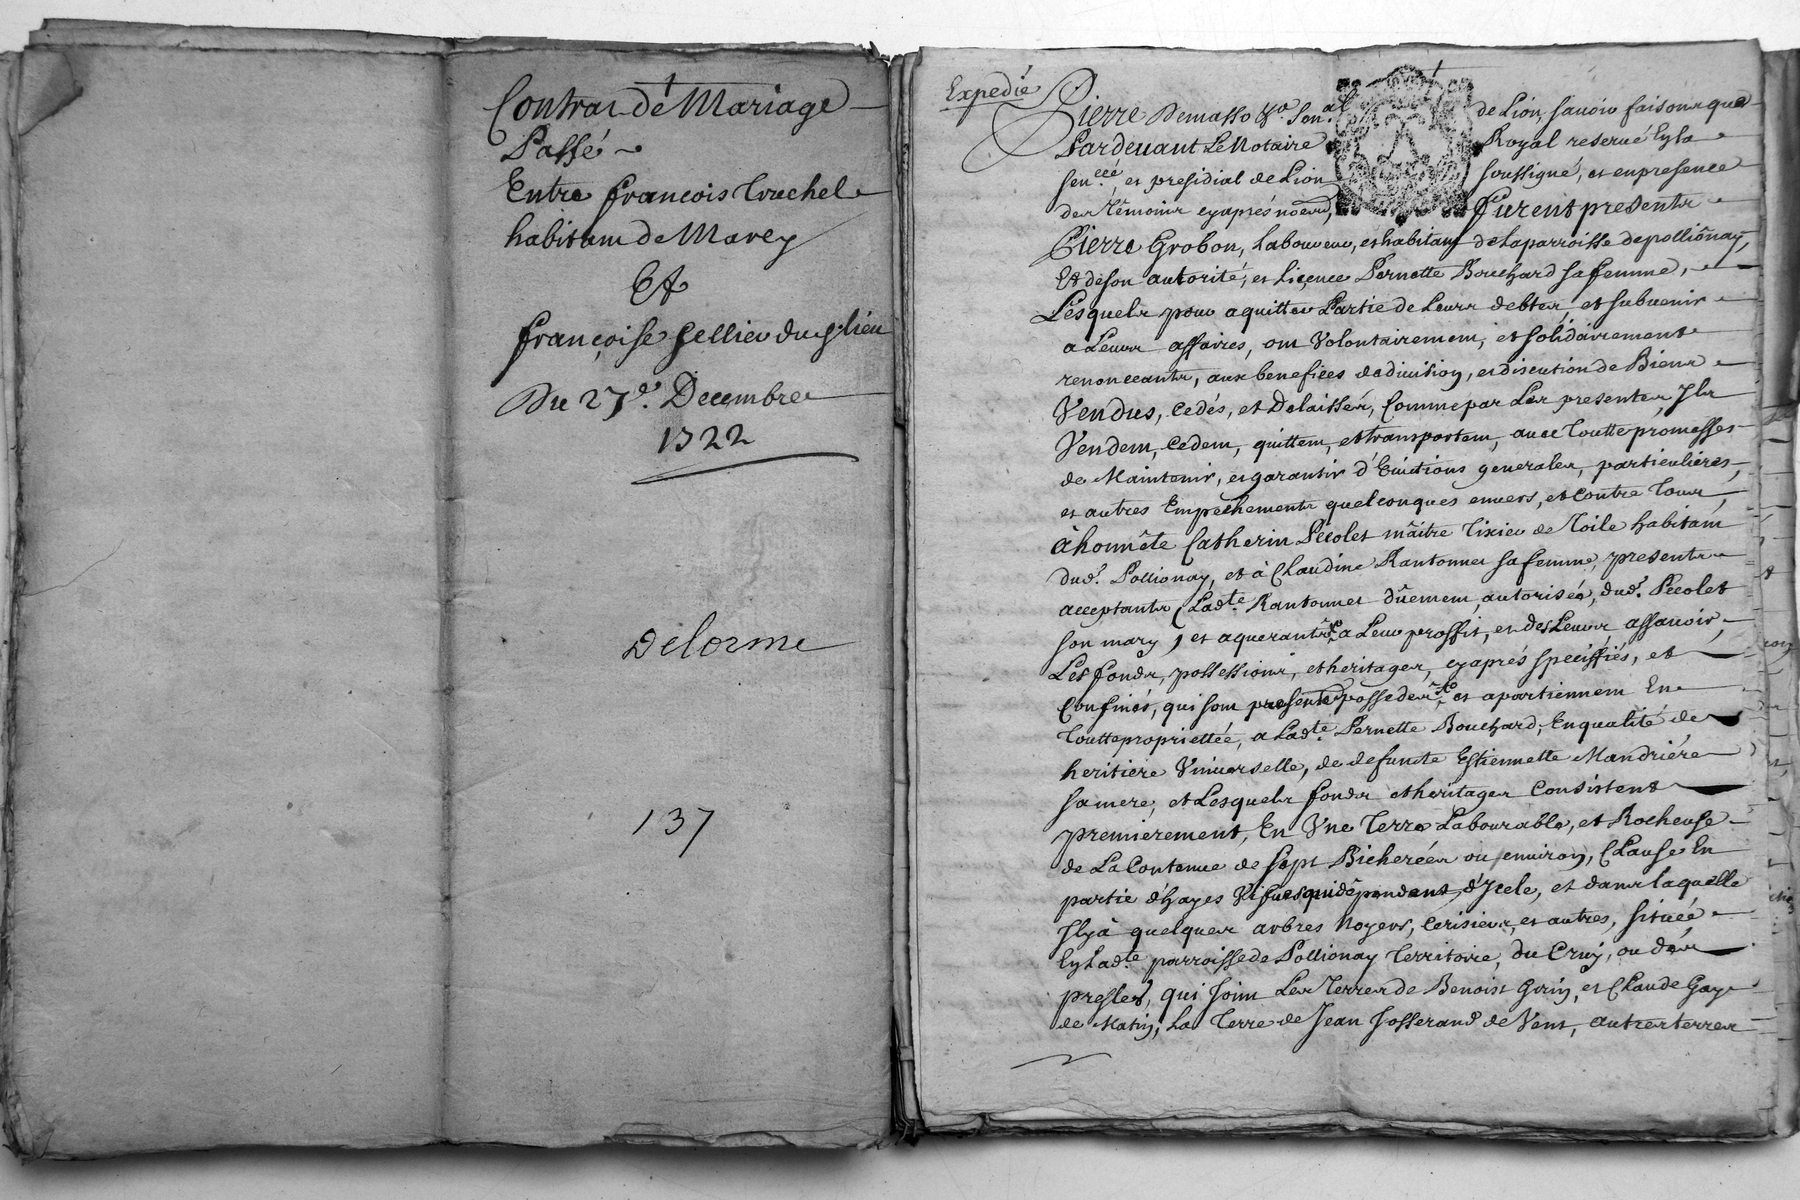 Contrat dé Mariage
Passé
Entre françois Truchet
habitant de Marcy
Et
françoise Gellieu dud. lieu
Du 27e. Decembre
1722
Delorme
137
Expedié
Pierre Demasso &a. Sen.al de Lion, sauoir faisons que
Pardeuant Le Notaire Royal reserué En la
Sen.ceé, et presidial de Lion soussigné, et en presence
des témoins cy aprés nommés, furent presents
Pierre Grobon, laboureur, et habitant de la parroisse de pollionay,
Et de son autorité, et licence Pernette Bouchard sa femme,
Lesquels pour aquitter Partie de Leurs debtes, et subuenir
a Leurs affaires, ont Volontairement, et solidairement
renonceants, aux benefices de diuision, et discution de Biens
Vendus, Cedés, et Delaissés, Comme par Les presentes Ils
Vendent, Cedent, quittent, et transportent, auec toutte promesses
de Maintenir, et garantir d'Euictions generales, particulieres,
et autres Empéchements quelconques enuers, et contre tous,
à honnête Catherin Pecolet maître Tixier de Toile habitant
dud. Pollionay, et à Claudine Rantonnet sa femme, presents
acceptants (Lad.te Rantonnet dûement autorisée, dud. Pecolet
son mary) et aquerants a Leur proffit, et des Leurs assauoir,
Les fonds, possessions, et heritages, cy aprés speciffiés, et
Confinés, qui sont possedes et apartiennent En
toutte propriettée, a Lad.te Pernette Bouchard, En qualité de
heritiere Vniuerselle, de defuncte Estiennette Mandriére
sa mere, et Lesquels fonds et heritages Consistent
premierement, En Vne Terre Labourable, et Rocheuse
de La Contenue de Sept Bicherées ou enuiron, Clause En
partie d'hayes Vifues qui dépendent d'Icele, et dans laquelle
Il y à quelques arbres Noyers, Cerisiers, et autres, située
En Lad.te parroisse de Pollionay Territoire, du Cruy, ou des
presles, qui Joint Les Terres de Benoist Gorin, et Claude Gay
de Matin, La Terre de Jean Josserand de Vent, autres terres